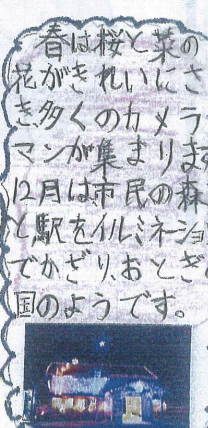 春は桜と菜の
花がきれいにさ
き、多くのカメラ
マンが集まります
12月は市民の森
と駅をイルミネーショ
でかざり、おとぎの
国のようです。